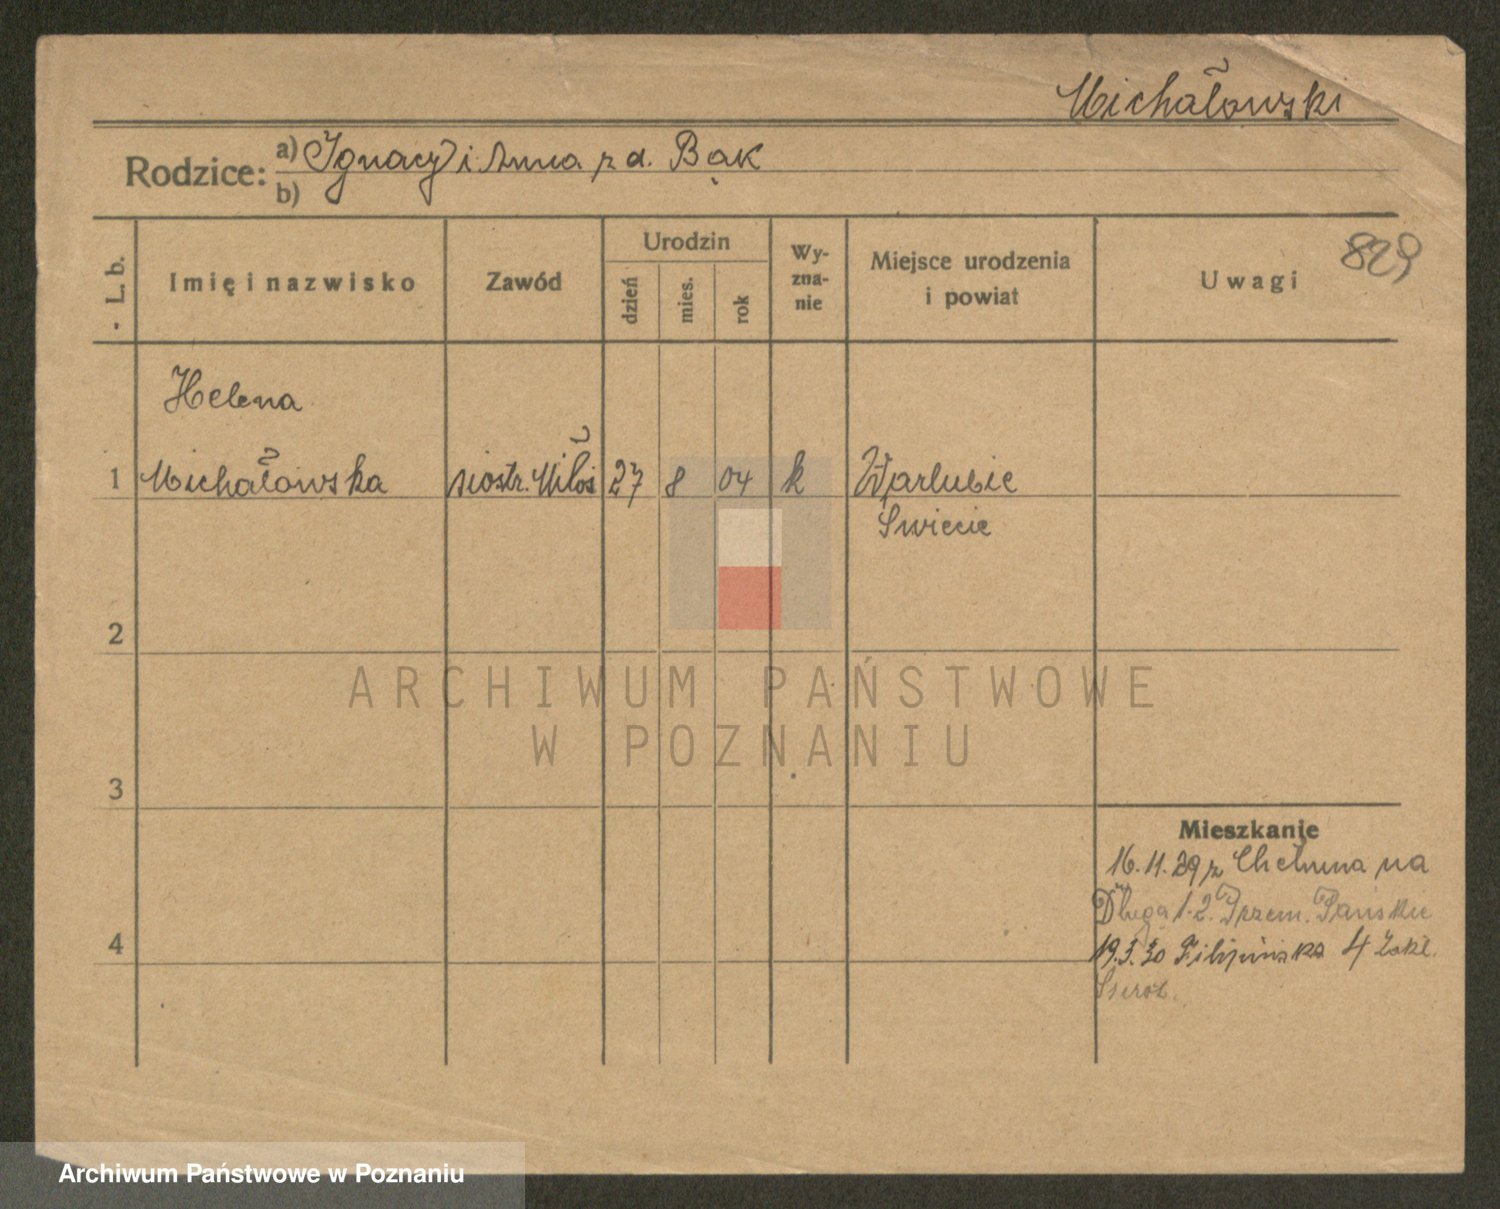 Michałowski
Rodzice: a) Ignacy i Anna z d. Bąk
b)
L. b.
Imię i nazwisko
Zawód
Urodzin
dzień
mies.
rok
Wy-
zna-
nie
Miejsce urodzenia
i powiat
Uwagi
829
Helena
1 Michałowska siostr. Miłos 27 8 04 k Warlubie
Świecie
2
ARCHIWUM PAŃSTWOWE
W POZNANIU
3
Mieszkanie
16.11.29 z Chełmna na
Długa 1-2. Przem. Pańskie
4
19.3.30 Filipińska 4 Zakł.
Sierot.
Archiwum Państwowe w Poznaniu